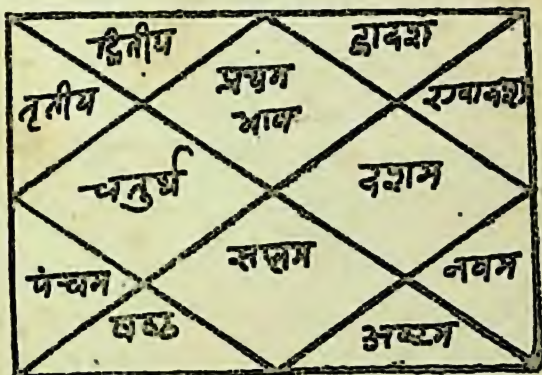 द्वितीय
द्वादश
तृतीय
प्रथम
भाव
एकादश
चतुर्थ
दशम
पंचम
सप्तम
नवम
षष्ठ
अष्टम